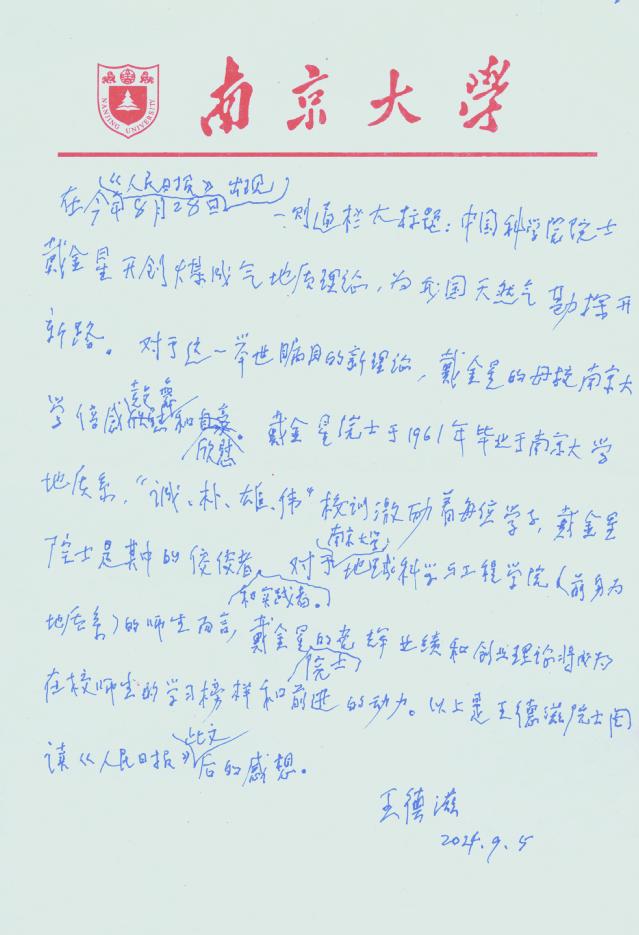 南京大学
NANJING UNIVERSITY
《人民日报》出现
在今年8月28日一则通栏大标题：中国科学院院士
戴金星开创煤成气地质理论，为我国天然气勘探开
新路。对于这一举世瞩目的新理论，戴金星的母校南京大
鼓舞
学倍感欣慰和自豪。戴金星院士于1961年毕业于南京大学
欣慰
地质系，"诚、朴、雄、伟"校训激励着每位学子，戴金星
南京大学
院士是其中的佼佼者。对于地球科学与工程学院（前身为
和实践者。
地质系）的师生而言，戴金星的光辉业绩和创业理论将成为
院士
在校师生的学习榜样和前进的动力。以上是王德滋院士阅
此文
读《人民日报》后的感想。
王德滋
2024.9.5